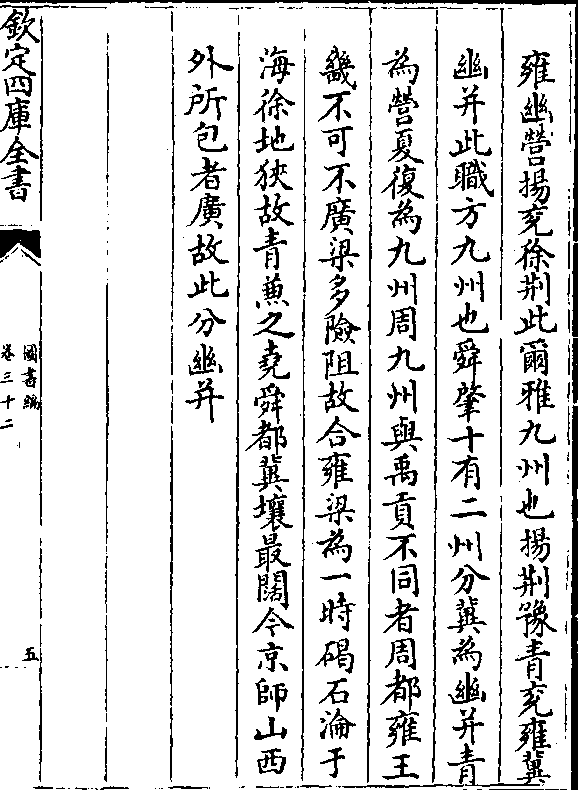 雍幽營揚兗徐荆此爾雅九州也揚荆豫青兗雍冀
幽并此職方九州也舜肇十有二州分冀為幽并青
為營夏復為九州周九州與禹貢不同者周都雍王
畿不可不廣梁多險阻故合雍梁為一時碣石淪于
海徐地狹故青兼之堯舜都冀壤最闊今京師山西
外所包者廣故此分幽并
欽定四庫全書
圖書編
卷三十二
五